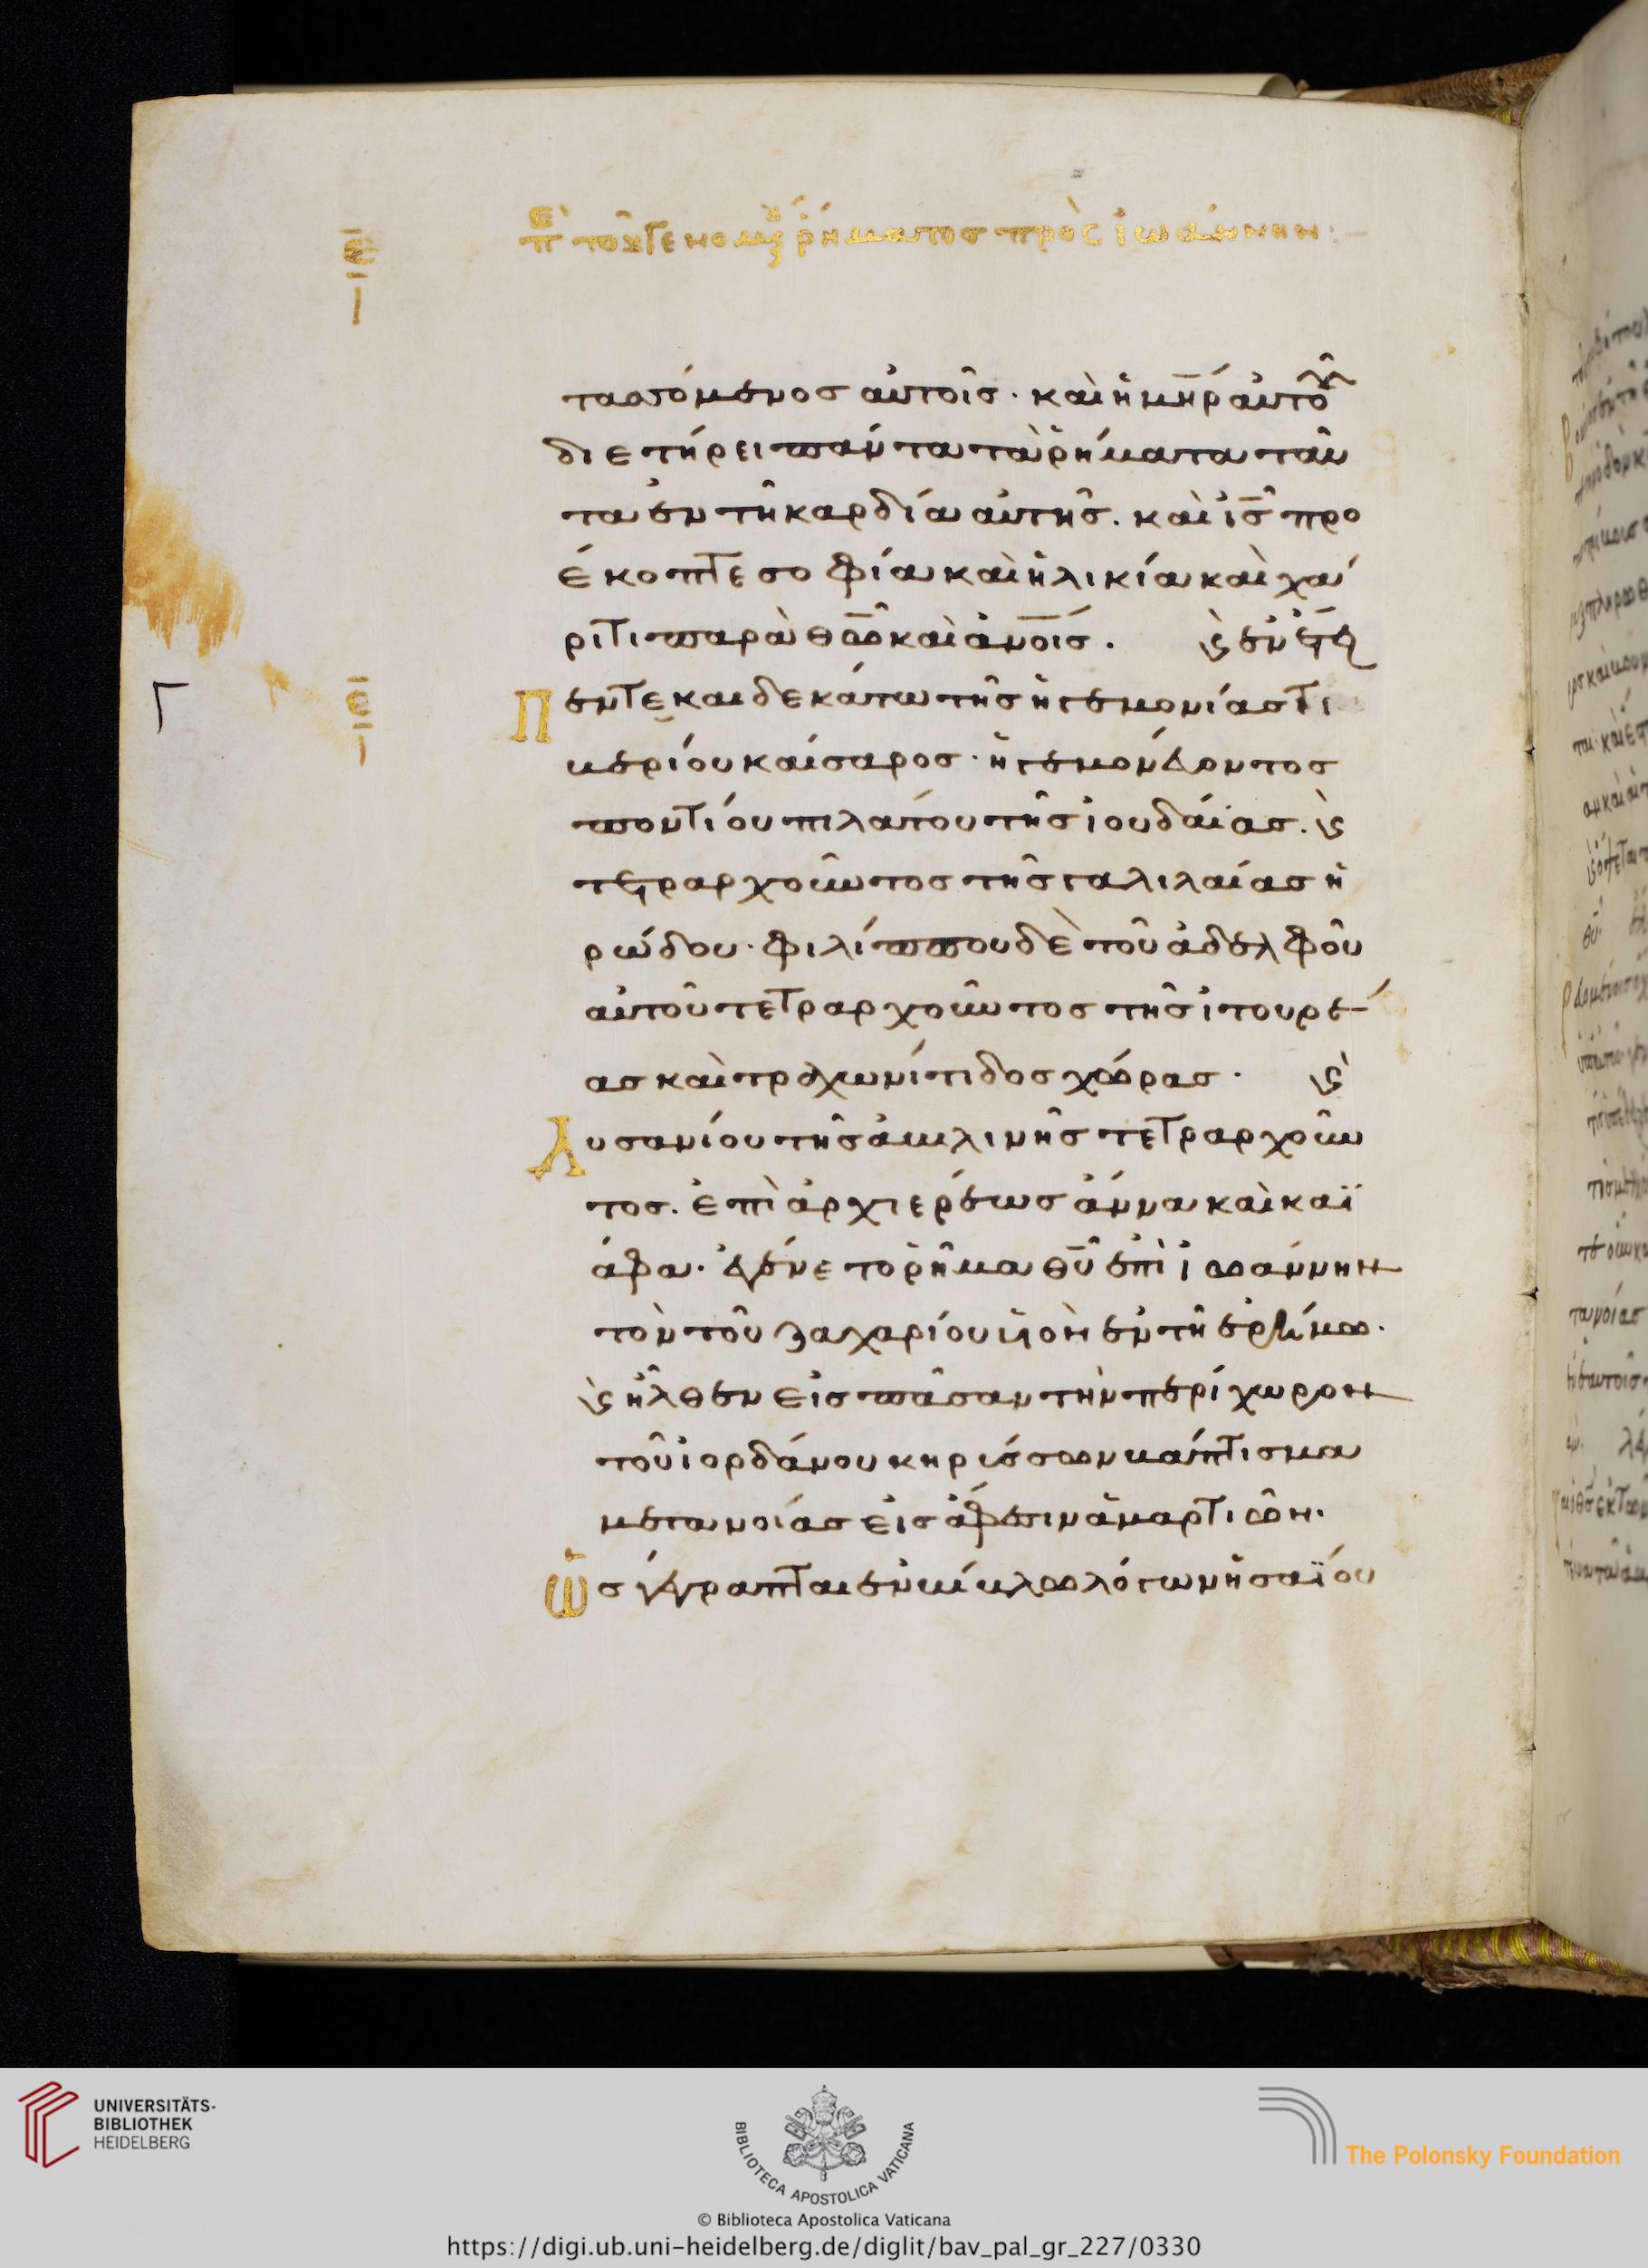 ε
ι
επ τοῦ γενομ ῥήματος πρὸς ἰωάννην:
τασσόμενος αὐτοῖς· καὶ ἡ μηρ αὐτοῦ
διετήρει πάντα τὰ ῥήματα ταῦ
τα ἐν τῆ καρδία αὐτῆς. καὶ ις προ
έκοπτε σοφία καὶ ἡλικία καὶ χά
ριτι παρὰ θω καὶ ανοις. ϗ ἐν ἔτ
Γ
ε
ι
Πεντεκαιδεκάτω τῆς ἡγεμονίας τι
βερίου καίσαρος· ἡγεμονέυοντος
ποντίου πιλάτου τῆς ἰουδαίας. ϗ
τετραρχοῦντος τῆς γαλιλαίας ἡ
ρώδου· φιλίππου δὲ τοῦ ἀδελφοῦ
αὐτοῦ τετραρχοῦντος τῆς ἰτουρέ
ας καὶ τραχωνίτιδος χώρας· ϗ
Λυσανίου τῆς ἀβιλινῆς τετραρχοῦν
τος. ἐπὶ ἀρχιερέως ἄννα καὶ καϊ
άφα· ἐγένετο ῥῆμα θυ ἐπὶ ἰωάννην
τὸν τοῦ ζαχαρίου υἱὸν ἐν τῆ ἐρήμω.
ϗ ἦλθεν εἰς πᾶσαν τὴν περίχωρον
τοῦ ἰορδάνου κηρύσσων βάπτισμα
μετανοίας εἰς ἄφεσιν ἁμαρτιῶν.
Ὡς γέγραπται ἐν βίβλω λόγων ἡσαΐου
UNIVERSITÄTS-
BIBLIOTHEK
HEIDELBERG
BIBLIOTECA APOSTOLICA VATICANA
The Polonsky Foundation
© Biblioteca Apostolica Vaticana
https://digi.ub.uni-heidelberg.de/diglit/bav_pal_gr_227/0330